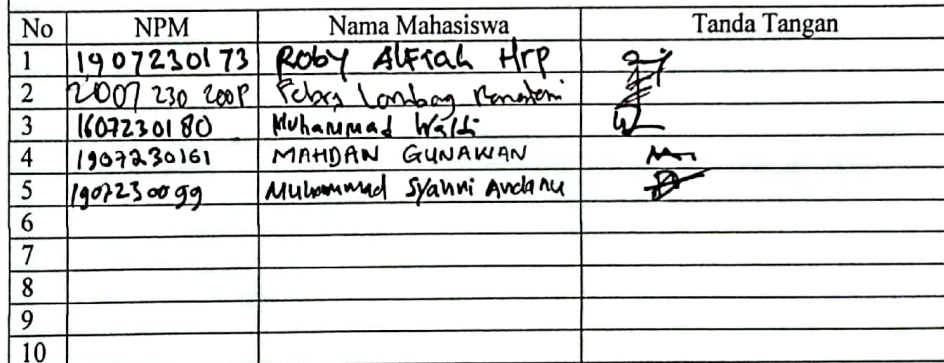 No NPM Nama Mahasiswa Tanda Tangan
1 1907230173 Roby Alfiah Hrp
2 2007 230 200P
3 1607230180 Muhammad Waldi
4 1907230161 MAHDAN GUNAWAN
5 1907230099 Muhammad Syahri
6
7
8
9
10